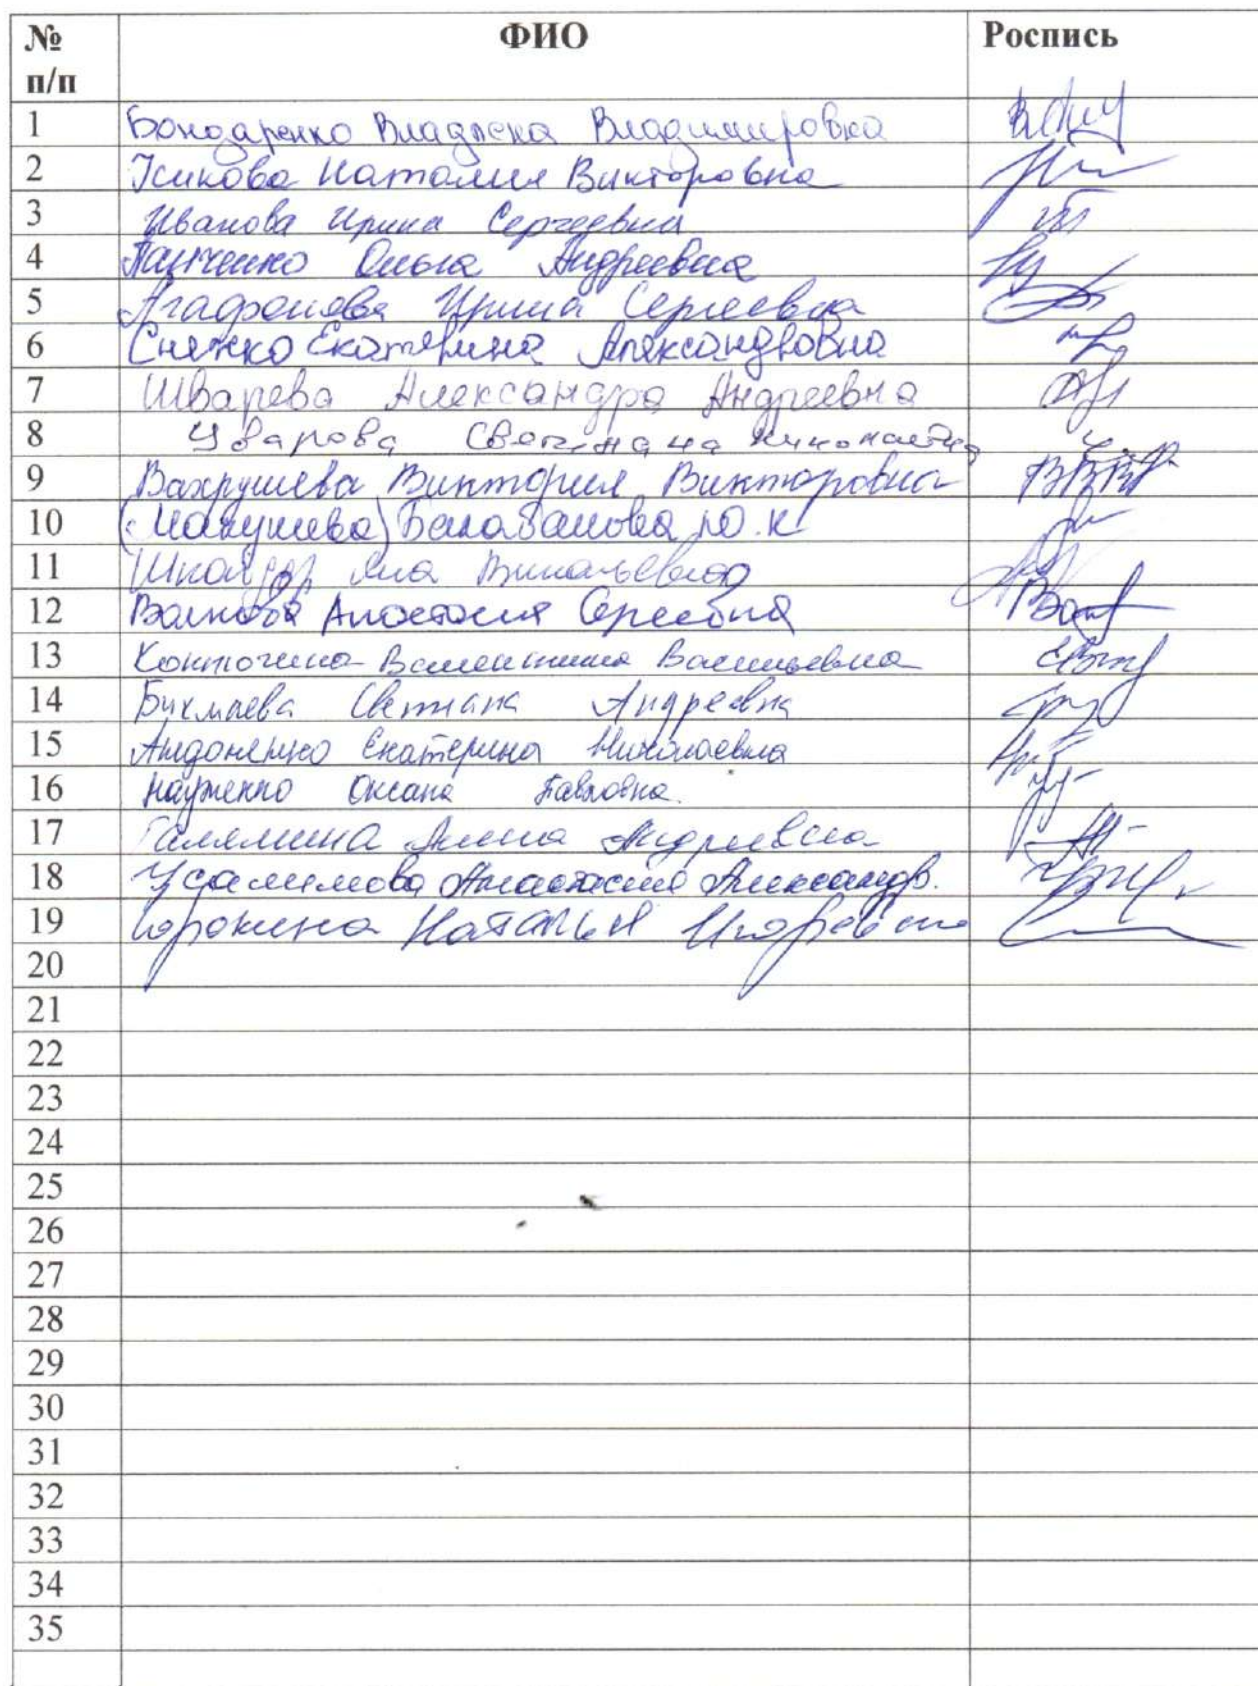 № п/п ФИО Роспись
1 Бондаренко Владлена Владимировна
2 Усикова Наталия Викторовна
3 Иванова Ирина Сергеевна
4 Панченко Ольга Андреевна
5 Агафонова Ирина Сергеевна
6 Снежко Екатерина Александровна
7 Шварева Александра Андреевна
8 Уварова Светлана Николаевна
9 Вахрушева Виктория Викторовна
10 Балабанова Ю.К
11 Яна Витальевна
12 Волкова Анастасия Сергеевна
13 Валентина Васильевна
14 Бикмаева Светлана Андреевна
15 Андоненко Екатерина Николаевна
16 Науменко Оксана Павловна.
17 Галямина Андреевна
18 Усалимова Анастасия Александр.
19 Сорокина Наталья Игоревна
20
21
22
23
24
25
26
27
28
29
30
31
32
33
34
35